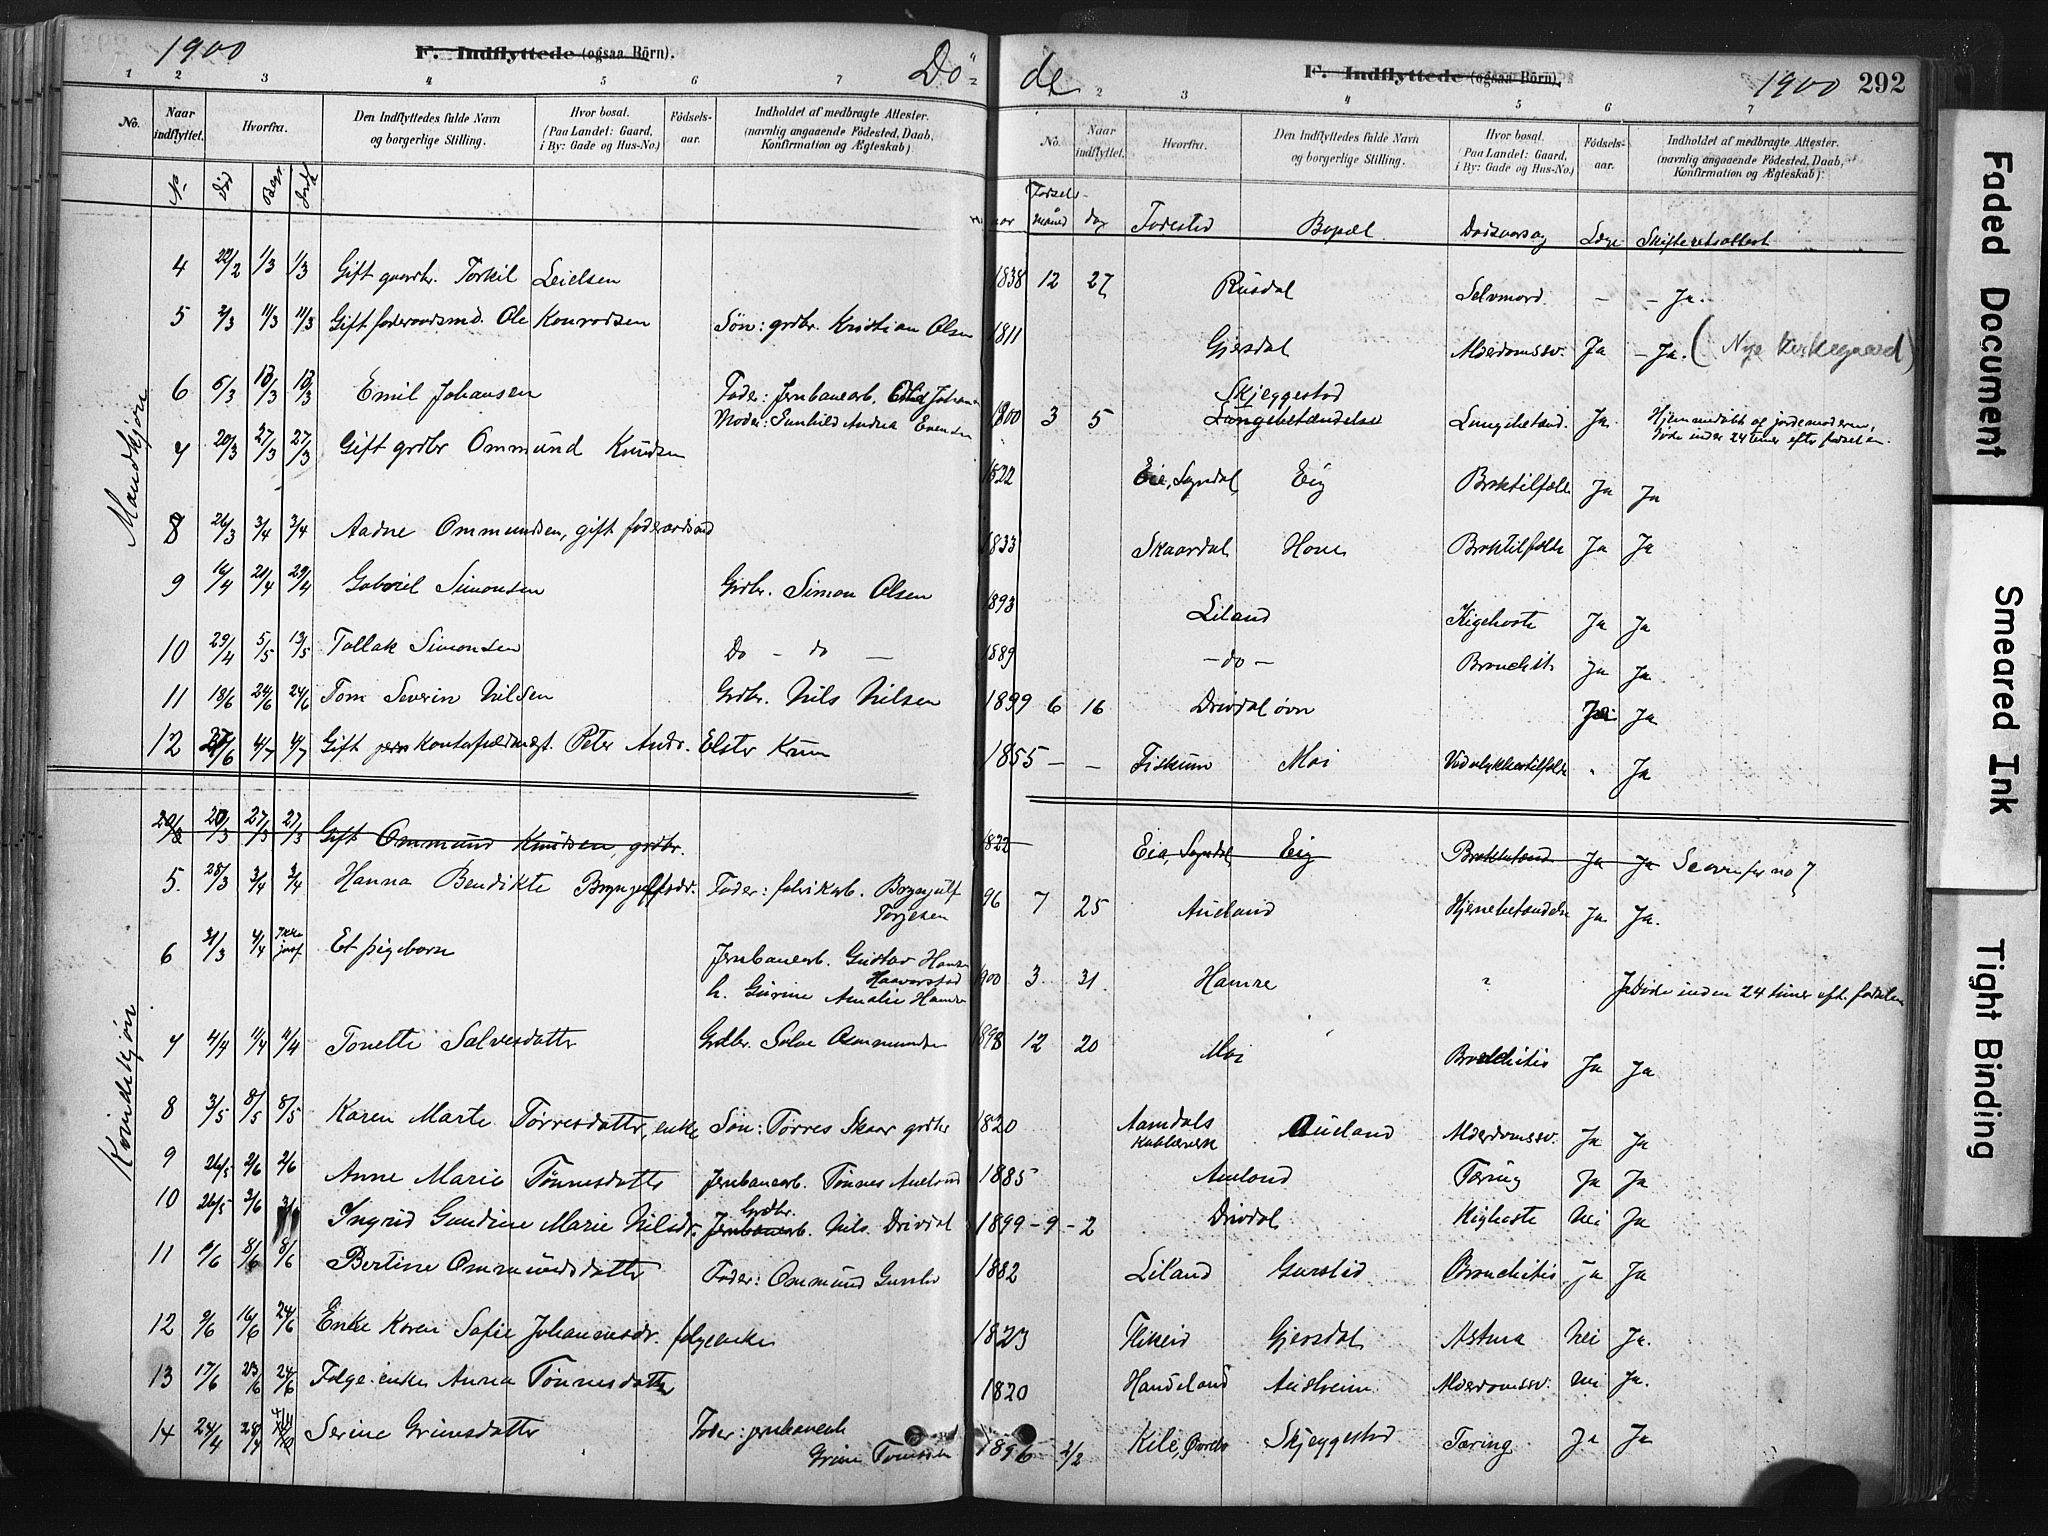 1900
F. Indflyttede (ogsaa Börn).
Dö-
1 2 3 4 5 6 7
No.
Naar indflyttet.
Hvorfra.
Den Indflyttedes fulde Navn og borgerlige Stilling.
Hvor bosat. (Paa Landet: Gaard, i By: Gade og Hus-No.)
Födsels-aar.
Indholdet af medbragte Attester. (navnlig angaaende Födested, Daab, Konfirmation og Ægteskab)
No Död Begr. Jordf
Mandkjøn
4 22/2 1/3 1/3 Gift gaardbr. Torkil Leielsen
5 2/3 11/3 11/3 Gift foderaadsmd. Ole Konradsen Søn: grdbr. Kristian Olsen
6 6/3 10/3 10/3 Emil Johansen Fader: Jernbanearb. Johan
Moder: Gunhild Andrea Evensen
7 20/3 27/3 27/3 Gift grdbr Ommund Knudsen
8 26/3 3/4 3/4 Aadne Ommundsen, gift foderaadsmd
9 16/4 21/4 29/4 Gabriel Simonsen Grdbr. Simon Olsen
10 29/4 5/5 13/5 Tallak Simonsen Do - do -
11 18/6 24/6 24/6 Tom Severin Nilsen Grdbr. Nils Nilsen
12 27/6 4/7 4/7 Gift Peter Andr. Elster Krum
20/3 27/3 27/3 Gift Ommund Knudsen, grdbr.
Kvindekjøn
5. 28/3 3/4 3/4 Hanna Bendikte Bryngelfsdr. Fader: fabrikarb. Bryngulf
Torjesen
6 31/3 4/4 Ikke jordf Et pigebarn Jernbanearb. Gustav Hamre
Haaverstad
h. Gurine Amalie Hamre
7 4/4 11/4 11/4 Tonette Salvesdatter Grdbr. Salve Ommundsen
8 3/5 8/5 8/5 Karen Marte Tørresdatter, enke Søn: Tørres Skaar grdbr
9 26/5 2/6 2/6 Anne Marie Tønnesdatter Jernbanearb. Tønnes Aueland
10 26/5 3/6 3/6 Ingrid Gundine Marie Nilsdr. Jernbanearb. Grdbr. Nils Drivdal
11 8/6 8/6 Bertine Ommundsdatter Fader: Ommund
12 9/6 16/6 24/6 Enke Karen Sofie Johannesdr. følgeenke
13 17/6 23/6 24/6 Følge-enke Anna Tønnesdatter
14 24/4 28/4 Serine Grimsdatter Fader: jernbanearb
Grim Tønnessen
de
F. Indflyttede (ogsaa Börn).
1900 292
2 3 4 5 6 7
No.
Naar indflyttet.
Hvorfra.
Den Indflyttedes fulde Navn og borgerlige Stilling.
Hvor bosat. (Paa Landet: Gaard, i By: Gade og Hus-No.)
Födsels-aar.
Indholdet af medbragte Attester. (navnlig angaaende Födested, Daab, Konfirmation og Ægteskab)
Fødsels-
aar maaned dag Fødested Bopæl Dødsaarsag Læge Skifteretsattest
1838 12 27 Rusdal Selvmord. - - Ja.
1811 Gjersdal Alderdomssv. Ja - Ja. (Nye Kirkegaard)
Skjeggestad
1900 3 5 Lungebetændelse Lungebetænd. Ja. Hjemmedøbt af jordemoderen,
døde inden 24 timer efter fødselen.
1822 Eie, Sogndal, Eig Braktilfælde Ja Ja
1833 Skaardal Hove Braktilfælde Ja Ja
1893 Liland Kighoste Ja Ja
1889 - do - Bronchit. Ja Ja
1899 6 16 Drivdal øvn Ja Ja
1855 - - Fiskum Moi Vaadeulykkestilfælde " Ja
1822 Eia, Sogndal, Eig Ja Ja Se ovenfor no 7
96 7 25 Aueland Hjernebetændelse Ja Ja.
1900 3 31 Hamre " Ja Døde inden 24 timer eft. fødselen
1898 12 20 Moi Bronchitis Ja Ja
1820 Aamdals Kobberverk Aueland Alderdomssv. Ja Ja
1885 Aueland Tæring Ja Ja
1899 - 9 - 2 Drivdal Kighoste Nei Ja
1882 Liland Gurstad Bronchitis Ja Ja
1823 Flikeid Gjersdal Astma Nei Ja.
1820 Handeland Ausheim Alderdomssv. Nei Ja.
1896 2/2 Kile, Skjeggestad Tæring Ja Ja
Faded Document
Smeared Ink
Tight Binding